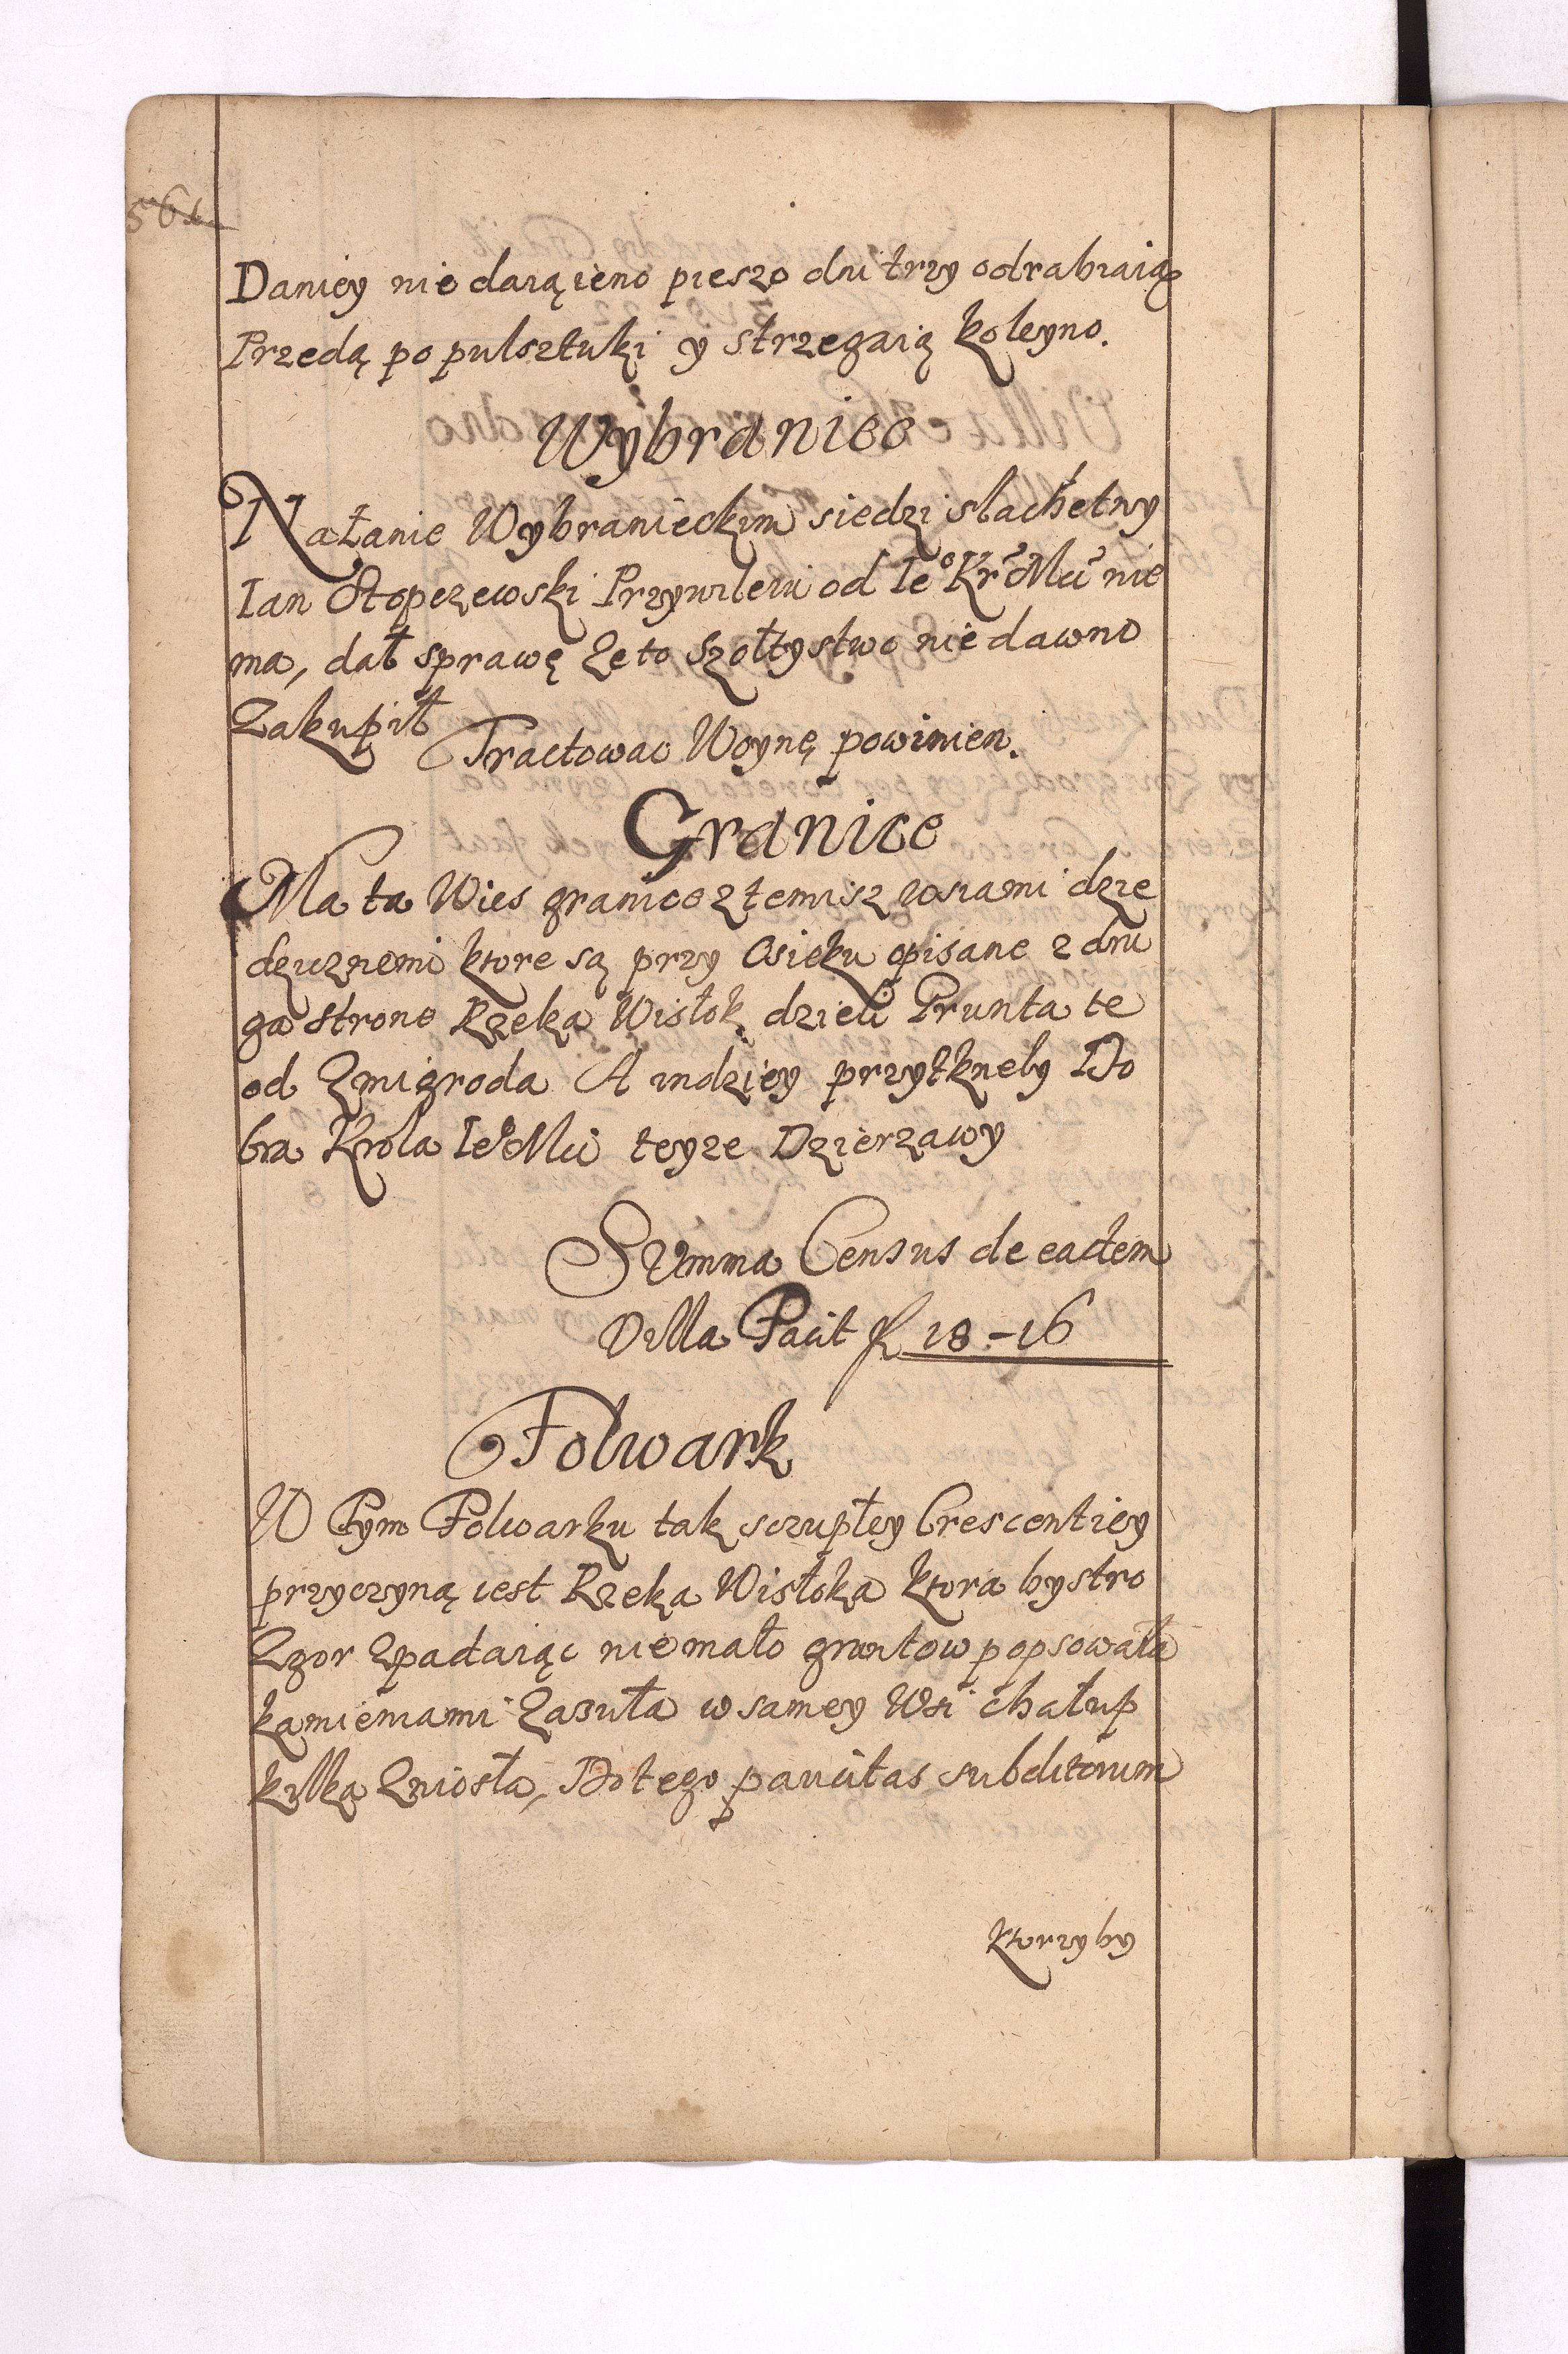 561
Daniey nie daią ieno pieszo dni trzy odrabiaią
Przedą po pulsztuki y strzegaią koleyno.
Wybraniec
Na Łanie Wybranieckim siedzi slachetny
Ian Stopczewski Przywileiu od Ieº Kr Mci nie
ma, dał sprawę ze to szołtystwo nie dawno
Zakupił
Tractowac Woynę powinien.
Granice
Ma ta Wies granice z temisz wsiami dzie
dzicznemi ktore są przy Osieku opisane z dru
ga strone Rzeka Wisłok dzieli Grunta te
od Zmigroda A indziey przytknely Do
bra Krola Ieº Mci teyze Dzierzawy
Summa Census de eadem
Villa Facit fl 18 - 16
Folwark
W Tym Folwarku tak sczupłey Crescentiey
przyczyną iest Rzeka Wisłoka ktora bystro
Zgor Zpadaiąc nie mało gruntow popsowała
kamieniami Zasuła w samey Wsi chałup
kilka Zniosła, Do tego paucitas subditorum
ktorzyby